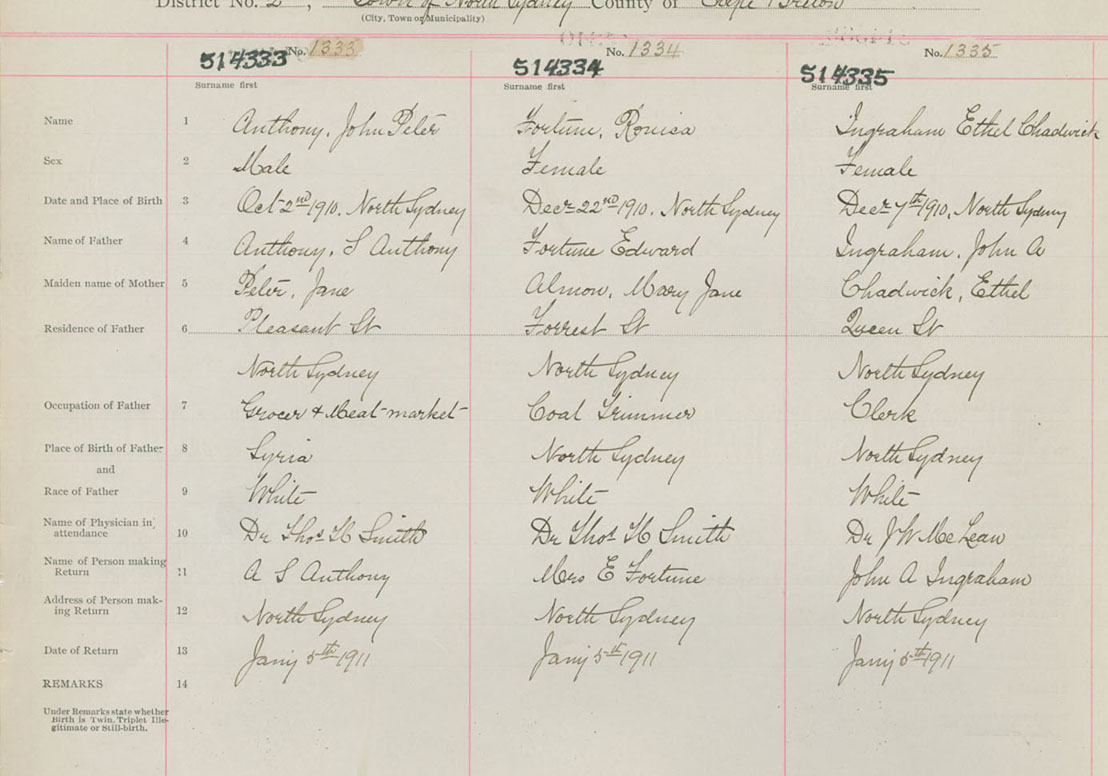 District No. 2, Town of North Sydney County of Cape Breton
(City, Town or Municipality)
514333 No. 1333 514334 No. 1334 514335 No. 1335
Surname first Surname first Surname first
Name 1 Anthony, John Peter Fortune, Rouisa Ingraham Ethel Chadwick
Sex 2 Male Female Female
Date and Place of Birth 3 Oct 2nd 1910, North Sydney Decr 22nd 1910, North Sydney Decr 7th 1910, North Sydney
Name of Father 4 Anthony, S Anthony Fortune Edward Ingraham, John A
Maiden name of Mother 5 Peter, Jane Almon, Mary Jane Chadwick, Ethel
Residence of Father 6 Pleasant St Forrest St Queen St
North Sydney North Sydney North Sydney
Occupation of Father 7 Grocer & Meat-market Coal Trimmer Clerk
Place of Birth of Father 8 Syria North Sydney North Sydney
and
Race of Father 9 White White White
Name of Physician in attendance 10 Dr Thos H Smith Dr Thos H Smith Dr J W McLean
Name of Person making Return 11 A S Anthony Mrs E Fortune John A Ingraham
Address of Person making Return 12 North Sydney North Sydney North Sydney
Date of Return 13 Jany 5th 1911 Jany 5th 1911 Jany 5th 1911
REMARKS 14
Under Remarks state whether
Birth is Twin, Triplet Ille-
gitimate or Still-birth.